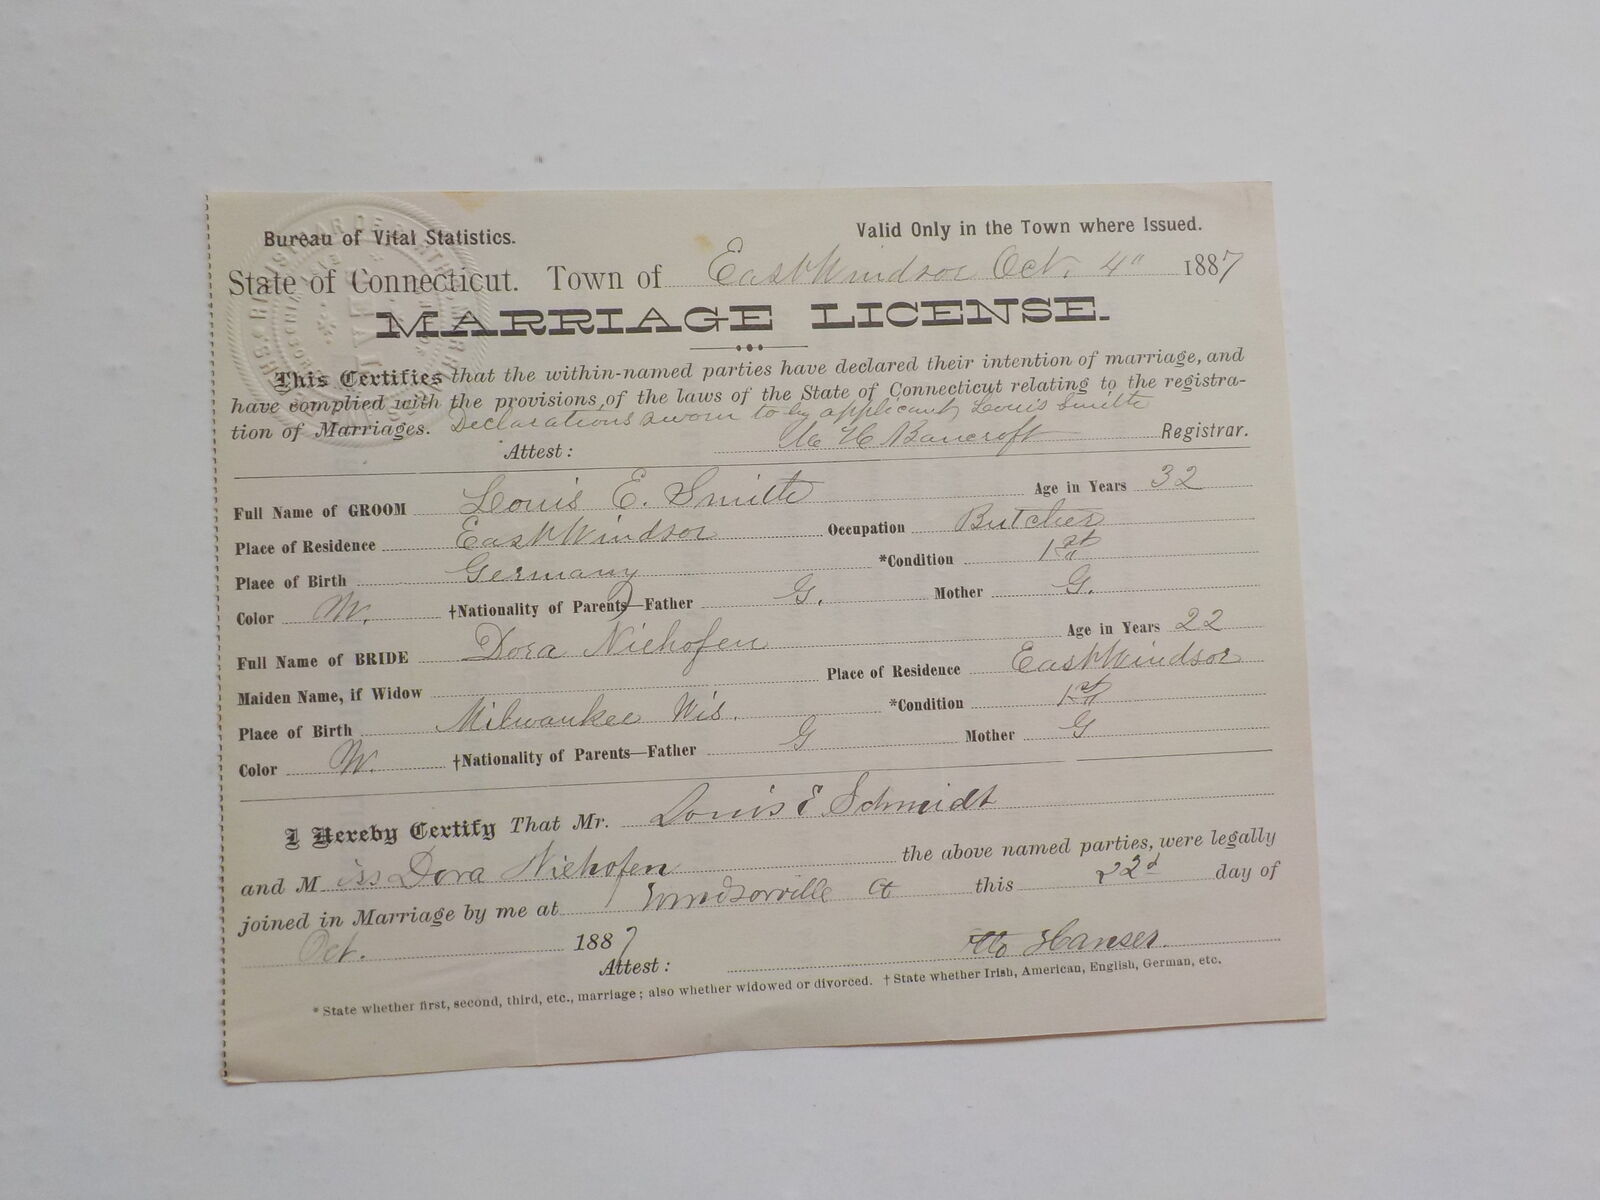 Bureau of Vital Statistics. Valid Only in the Town where Issued.
State of Connecticut. Town of East Windsor Oct. 4" 1887
MARRIAGE LICENSE.
This Certifies that the within-named parties have declared their intention of marriage, and
have complied with the provisions of the laws of the State of Connecticut relating to the registra-
tion of Marriages. Declarations sworn to by applicant Louis Smith
Attest: H Bancroft Registrar.
Full Name of GROOM Louis E. Smith Age in Years 32
Place of Residence East Windsor Occupation Butcher
Place of Birth Germany *Condition 1st
Color W. †Nationality of Parents—Father G. Mother G.
Full Name of BRIDE Dora Niehofen Age in Years 22
Maiden Name, if Widow Place of Residence East Windsor
Place of Birth Milwaukee Wis. *Condition 1st
Color W. †Nationality of Parents—Father G Mother G
I Hereby Certify That Mr. Louis E Schmidt
and Miss Dora Niehofen the above named parties, were legally
joined in Marriage by me at Windsorville Ct this 22d day of
Oct. 1887
Attest: Otto Hanser.
* State whether first, second, third, etc., marriage; also whether widowed or divorced. † State whether Irish, American, English, German, etc.